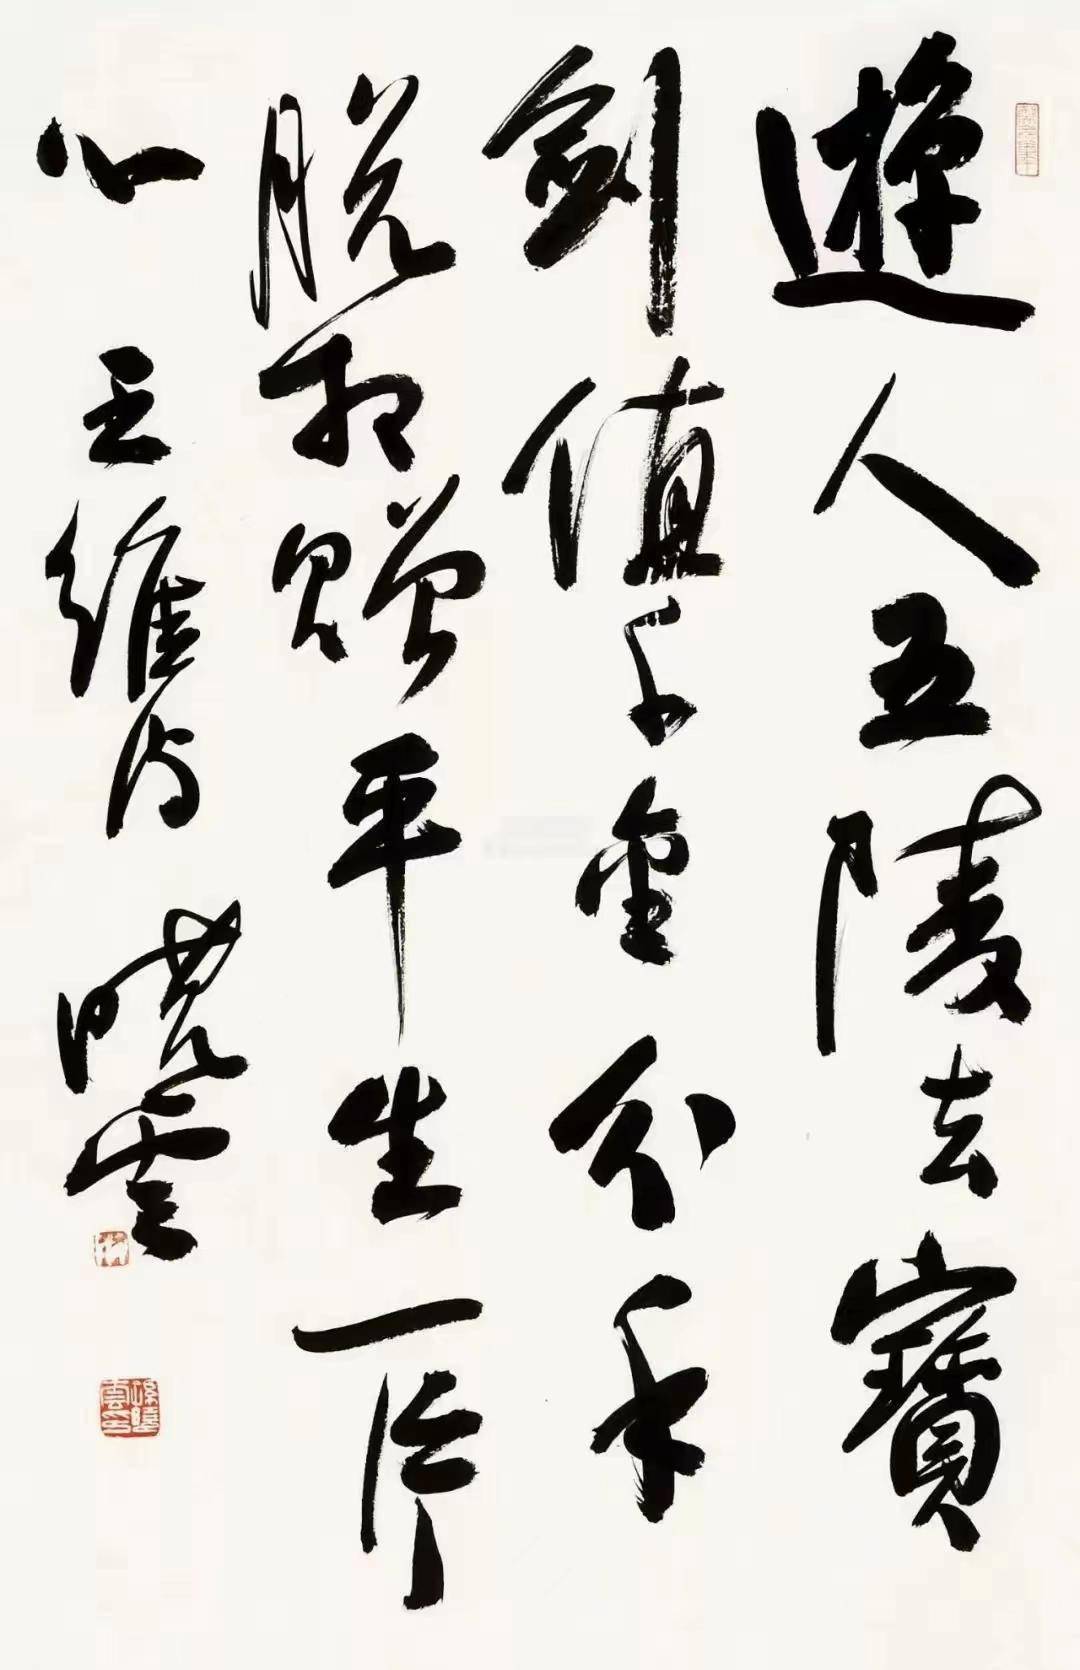 遊人五陵去寶
劍值千金分手
脫相贈平生一片
心 王維诗 曉雲
孫曉雲印